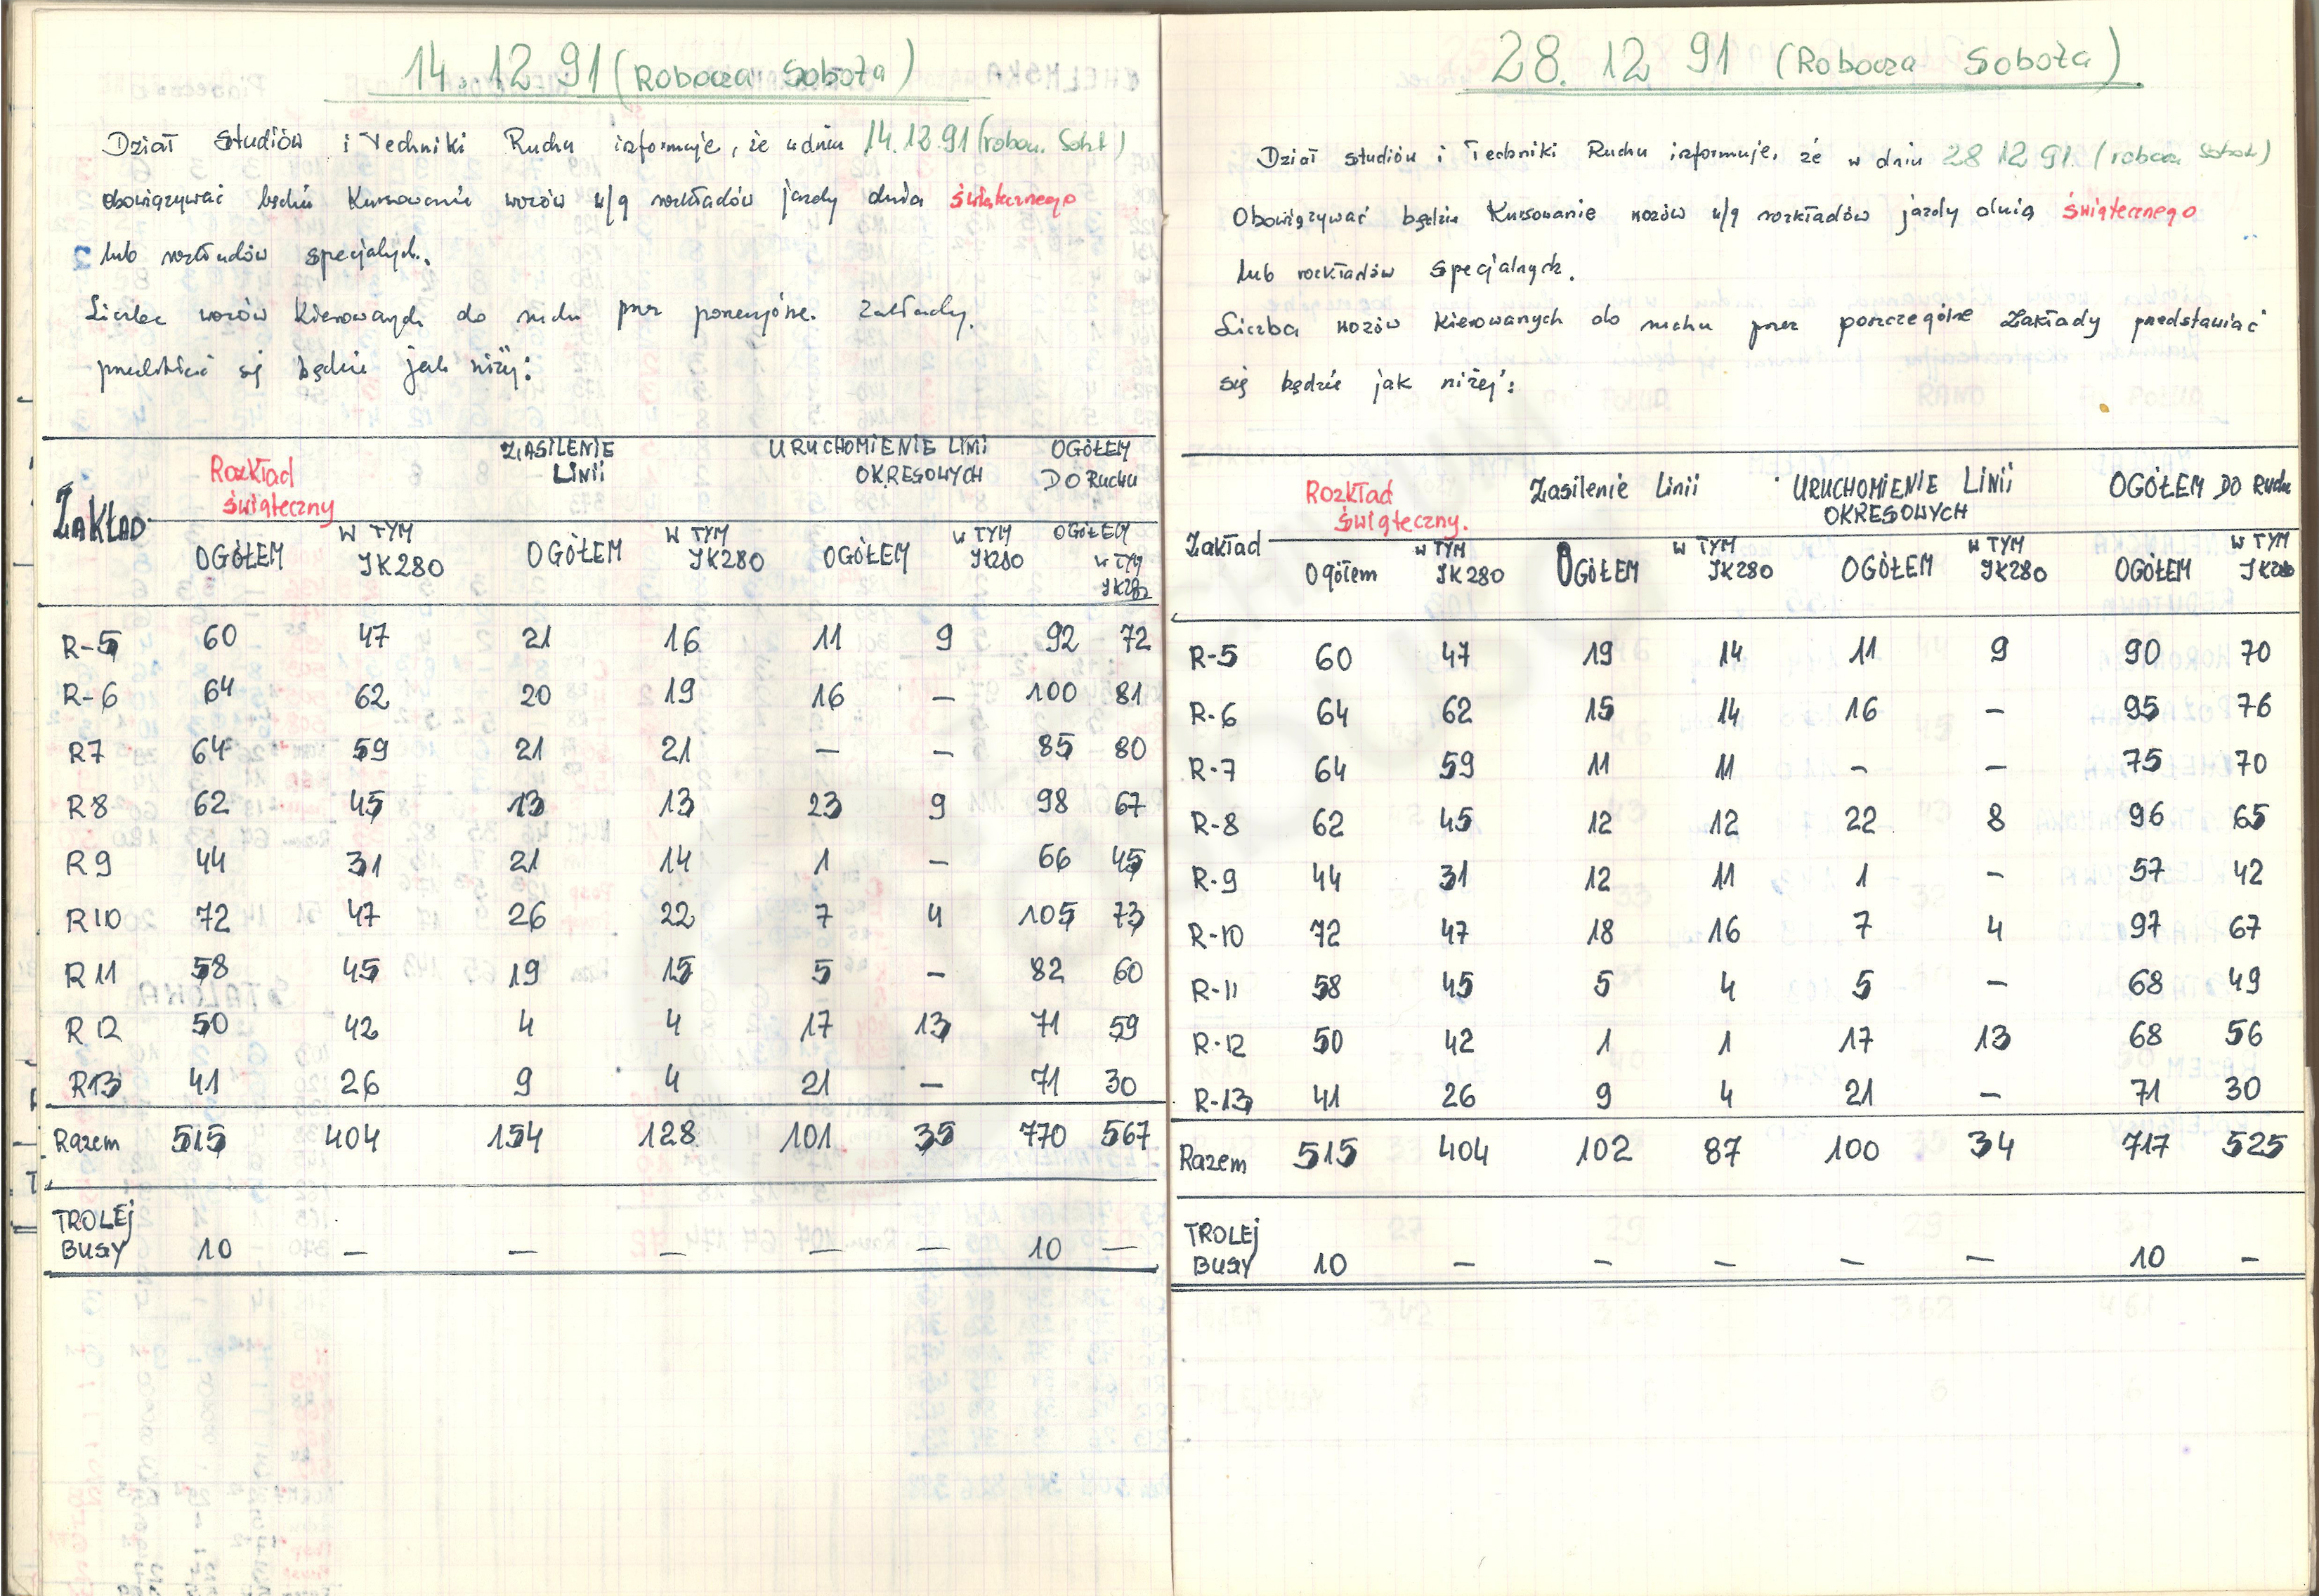 14.12.91 (Robocza Sobota)
Dział Studiów i Techniki Ruchu informuje, że w dniu 14.12.91 (roboc. Sobt)
obowiązywać będzie Kursowanie wozów w/g rozkładów jazdy dnia świątecznego
lub rozkładów specjalych.
Liczba wozów kierowanych do ruchu prze poszczególne. Zakłady.
przedstawiać się będzie jak niżej:
ZAKŁAD
Rozkład świąteczny
ZASILENIE LINII
URUCHOMIENIE LINII OKRESOWYCH
OGÓŁEM DO RUCHU
OGÓŁEM W TYM IK280 OGÓŁEM W TYM IK280 OGÓŁEM W TYM IK280 OGÓŁEM W TYM IK280
R-5 60 47 21 16 11 9 92 72
R-6 64 62 20 19 16 — 100 81
R7 64 59 21 21 — — 85 80
R8 62 45 13 13 23 9 98 67
R9 44 31 21 14 1 — 66 45
R10 72 47 26 22 7 4 105 73
R11 58 45 19 15 5 — 82 60
R12 50 42 4 4 17 13 71 59
R13 41 26 9 4 21 — 71 30
Razem 515 404 154 128 101 35 770 567
TROLEJ
BUSY 10 — — — — — 10 —
28.12 91 (Robocza Sobota)
Dział studiów i Techniki Ruchu informuje, że w dniu 28 12 91. (robocz Sobota)
Obowiązywać będzie Kursowanie wozów w/g rozkładów jazdy dnia świątecznego
lub rozkładów specjalnych.
Liczba wozów kierowanych do ruchu przez poszczególne Zakłady przedstawiać
się będzie jak niżej:
Zakład
Rozkład świąteczny.
Zasilenie Linii
URUCHOMIENIE LINII OKRESOWYCH
OGÓŁEM DO Ruchu
Ogółem W TYM IK280 OGÓŁEM W TYM IK280 OGÓŁEM W TYM IK280 OGÓŁEM W TYM IK280
R-5 60 47 19 14 11 9 90 70
R-6 64 62 15 14 16 — 95 76
R-7 64 59 11 11 — — 75 70
R-8 62 45 12 12 22 8 96 65
R-9 44 31 12 11 1 — 57 42
R-10 72 47 18 16 7 4 97 67
R-11 58 45 5 4 5 — 68 49
R-12 50 42 1 1 17 13 68 56
R-13 41 26 9 4 21 — 71 30
Razem 515 404 102 87 100 34 717 525
TROLEJ
BUSY 10 — — — — — 10 —